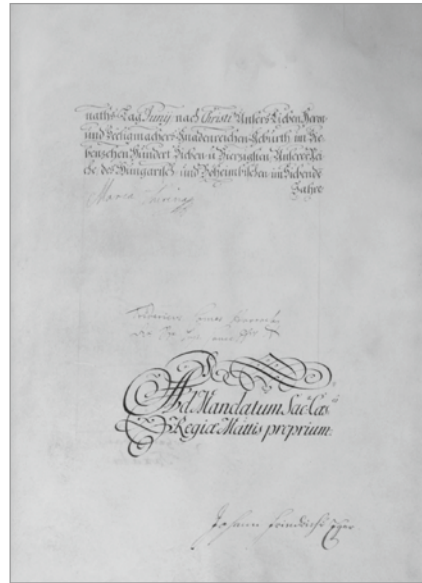 naths-Tag Junÿ nach Christi Unsers Lieben Herrn
und Seeligmachers Gnadenreichen Gebürth im Sie-
benzehen Hundert Sieben u: Vierzigsten, Unserer Rei-
che des Hungarisch- und Böheimbischen im Siebende
Jahre
Maria Theresia
Ad Mandatum Sac: Cæs:
Regiæ Mättis proprium:
Johann Friedrich